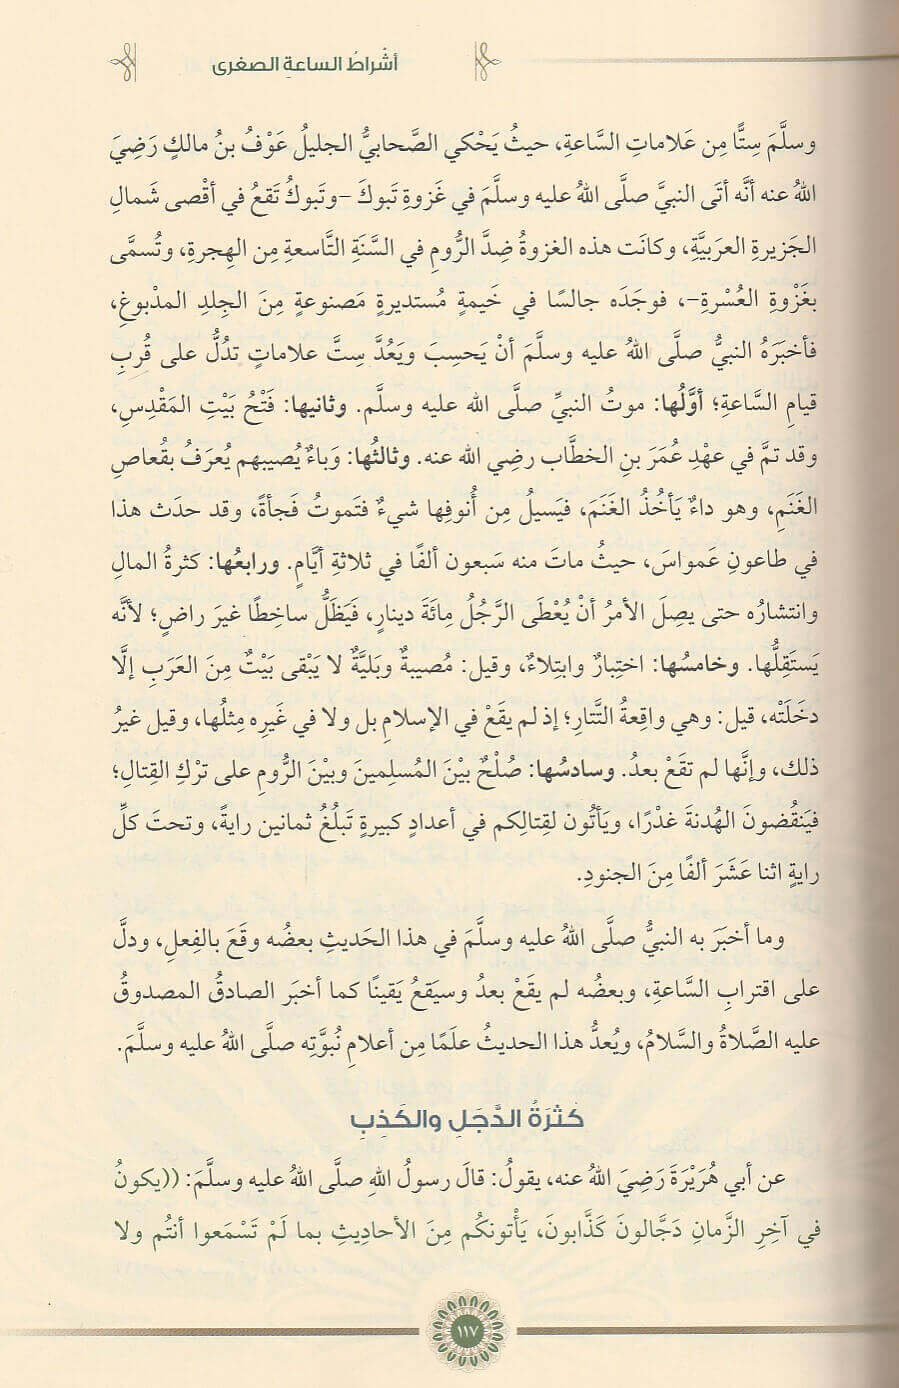 أشراطُ الساعةِ الصغرى
وسلَّمَ سِتًّا مِن عَلاماتِ السَّاعةِ، حيثُ يَحْكي الصَّحابيُّ الجليلُ عَوْفُ بنُ مالكٍ رَضِيَ
اللهُ عنه أنَّه أتَى النبيَّ صلَّى اللهُ عليه وسلَّمَ في غَزوةِ تَبوكَ –وتَبوكُ تَقعُ في أقْصى شَمالِ
الجَزيرةِ العرَبيَّةِ، وكانَت هذه الغزوةُ ضِدَّ الرُّومِ في السَّنَةِ التَّاسعةِ مِن الهِجرةِ، وتُسمَّى
بغَزْوةِ العُسْرةِ–، فوجَدَه جالسًا في خَيمةٍ مُستديرةٍ مَصنوعةٍ مِنَ الجِلدِ المدْبوغِ،
فأخبَرَهُ النبيُّ صلَّى اللهُ عليه وسلَّمَ أنْ يَحسِبَ ويَعُدَّ سِتَّ علاماتٍ تدُلُّ على قُربِ
قيامِ السَّاعةِ؛ أوَّلُها: موتُ النبيِّ صلَّى الله عليه وسلَّم. وثانيها: فَتْحُ بَيْتِ المَقْدِسِ،
وقد تمَّ في عهْدِ عُمَرَ بنِ الخطَّاب رضِي الله عنه. وثالثُها: وَباءٌ يُصيبهم يُعرَفُ بقُعاصِ
الغَنَمِ، وهو داءٌ يَأخُذُ الغَنَمَ، فيَسيلُ مِن أُنوفِها شيءٌ فتَموتُ فَجأةً، وقد حدَث هذا
في طاعونِ عَمواسَ، حيثُ ماتَ منه سَبعون ألفًا في ثلاثةِ أيَّامٍ. ورابعُها: كثرةُ المالِ
وانتشارُه حتى يصِلَ الأمرُ أنْ يُعْطَى الرَّجُلُ مِائَةَ دينارٍ، فيَظَلُّ ساخِطًا غيرَ راضٍ؛ لأنَّه
يَستَقِلُّها. وخامسُها: اختِبارٌ وابتِلاءٌ، وقيل: مُصيبةٌ وبَليَّةٌ لا يَبْقى بَيْتٌ مِنَ العَرَبِ إلَّا
دخَلَتْه، قيل: وهي واقِعةُ التَّتارِ؛ إذ لم يقَعْ في الإسلامِ بل ولا في غَيرِه مِثلُها، وقيل غيرُ
ذلك، وإنَّها لم تقَعْ بعدُ. وسادسُها: صُلْحٌ بيْنَ المُسلِمينَ وبيْنَ الرُّومِ على ترْكِ القِتالِ؛
فيَنقُضونَ الهُدنةَ غدْرًا، ويَأتُون لقِتالِكم في أعدادٍ كبيرةٍ تَبلُغُ ثمانين رايةً، وتحتَ كلِّ
رايةٍ اثنا عَشَرَ ألفًا مِنَ الجنودِ.
وما أخبَرَ به النبيُّ صلَّى اللهُ عليه وسلَّمَ في هذا الحَديثِ بعضُه وقَعَ بالفِعلِ، ودلَّ
على اقترابِ السَّاعةِ، وبعضُه لم يقَعْ بعدُ وسيَقعُ يَقينًا كما أخبَر الصادقُ المصدوقُ
عليه الصَّلاةُ والسَّلامُ، ويُعدُّ هذا الحديثُ علَمًا مِن أعلامِ نُبوَّتِه صلَّى اللهُ عليه وسلَّمَ.
كَثرَةُ الدَّجَلِ والكَذِبِ
عن أبي هُرَيْرَةَ رَضِيَ اللهُ عنه، يقولُ: قالَ رسولُ اللهِ صلَّى اللهُ عليه وسلَّمَ: ((يكونُ
في آخِرِ الزَّمانِ دَجَّالونَ كَذَّابونَ، يَأْتونكُم مِنَ الأحاديِثِ بما لَمْ تَسْمَعوا أنتُم ولا
١١٧